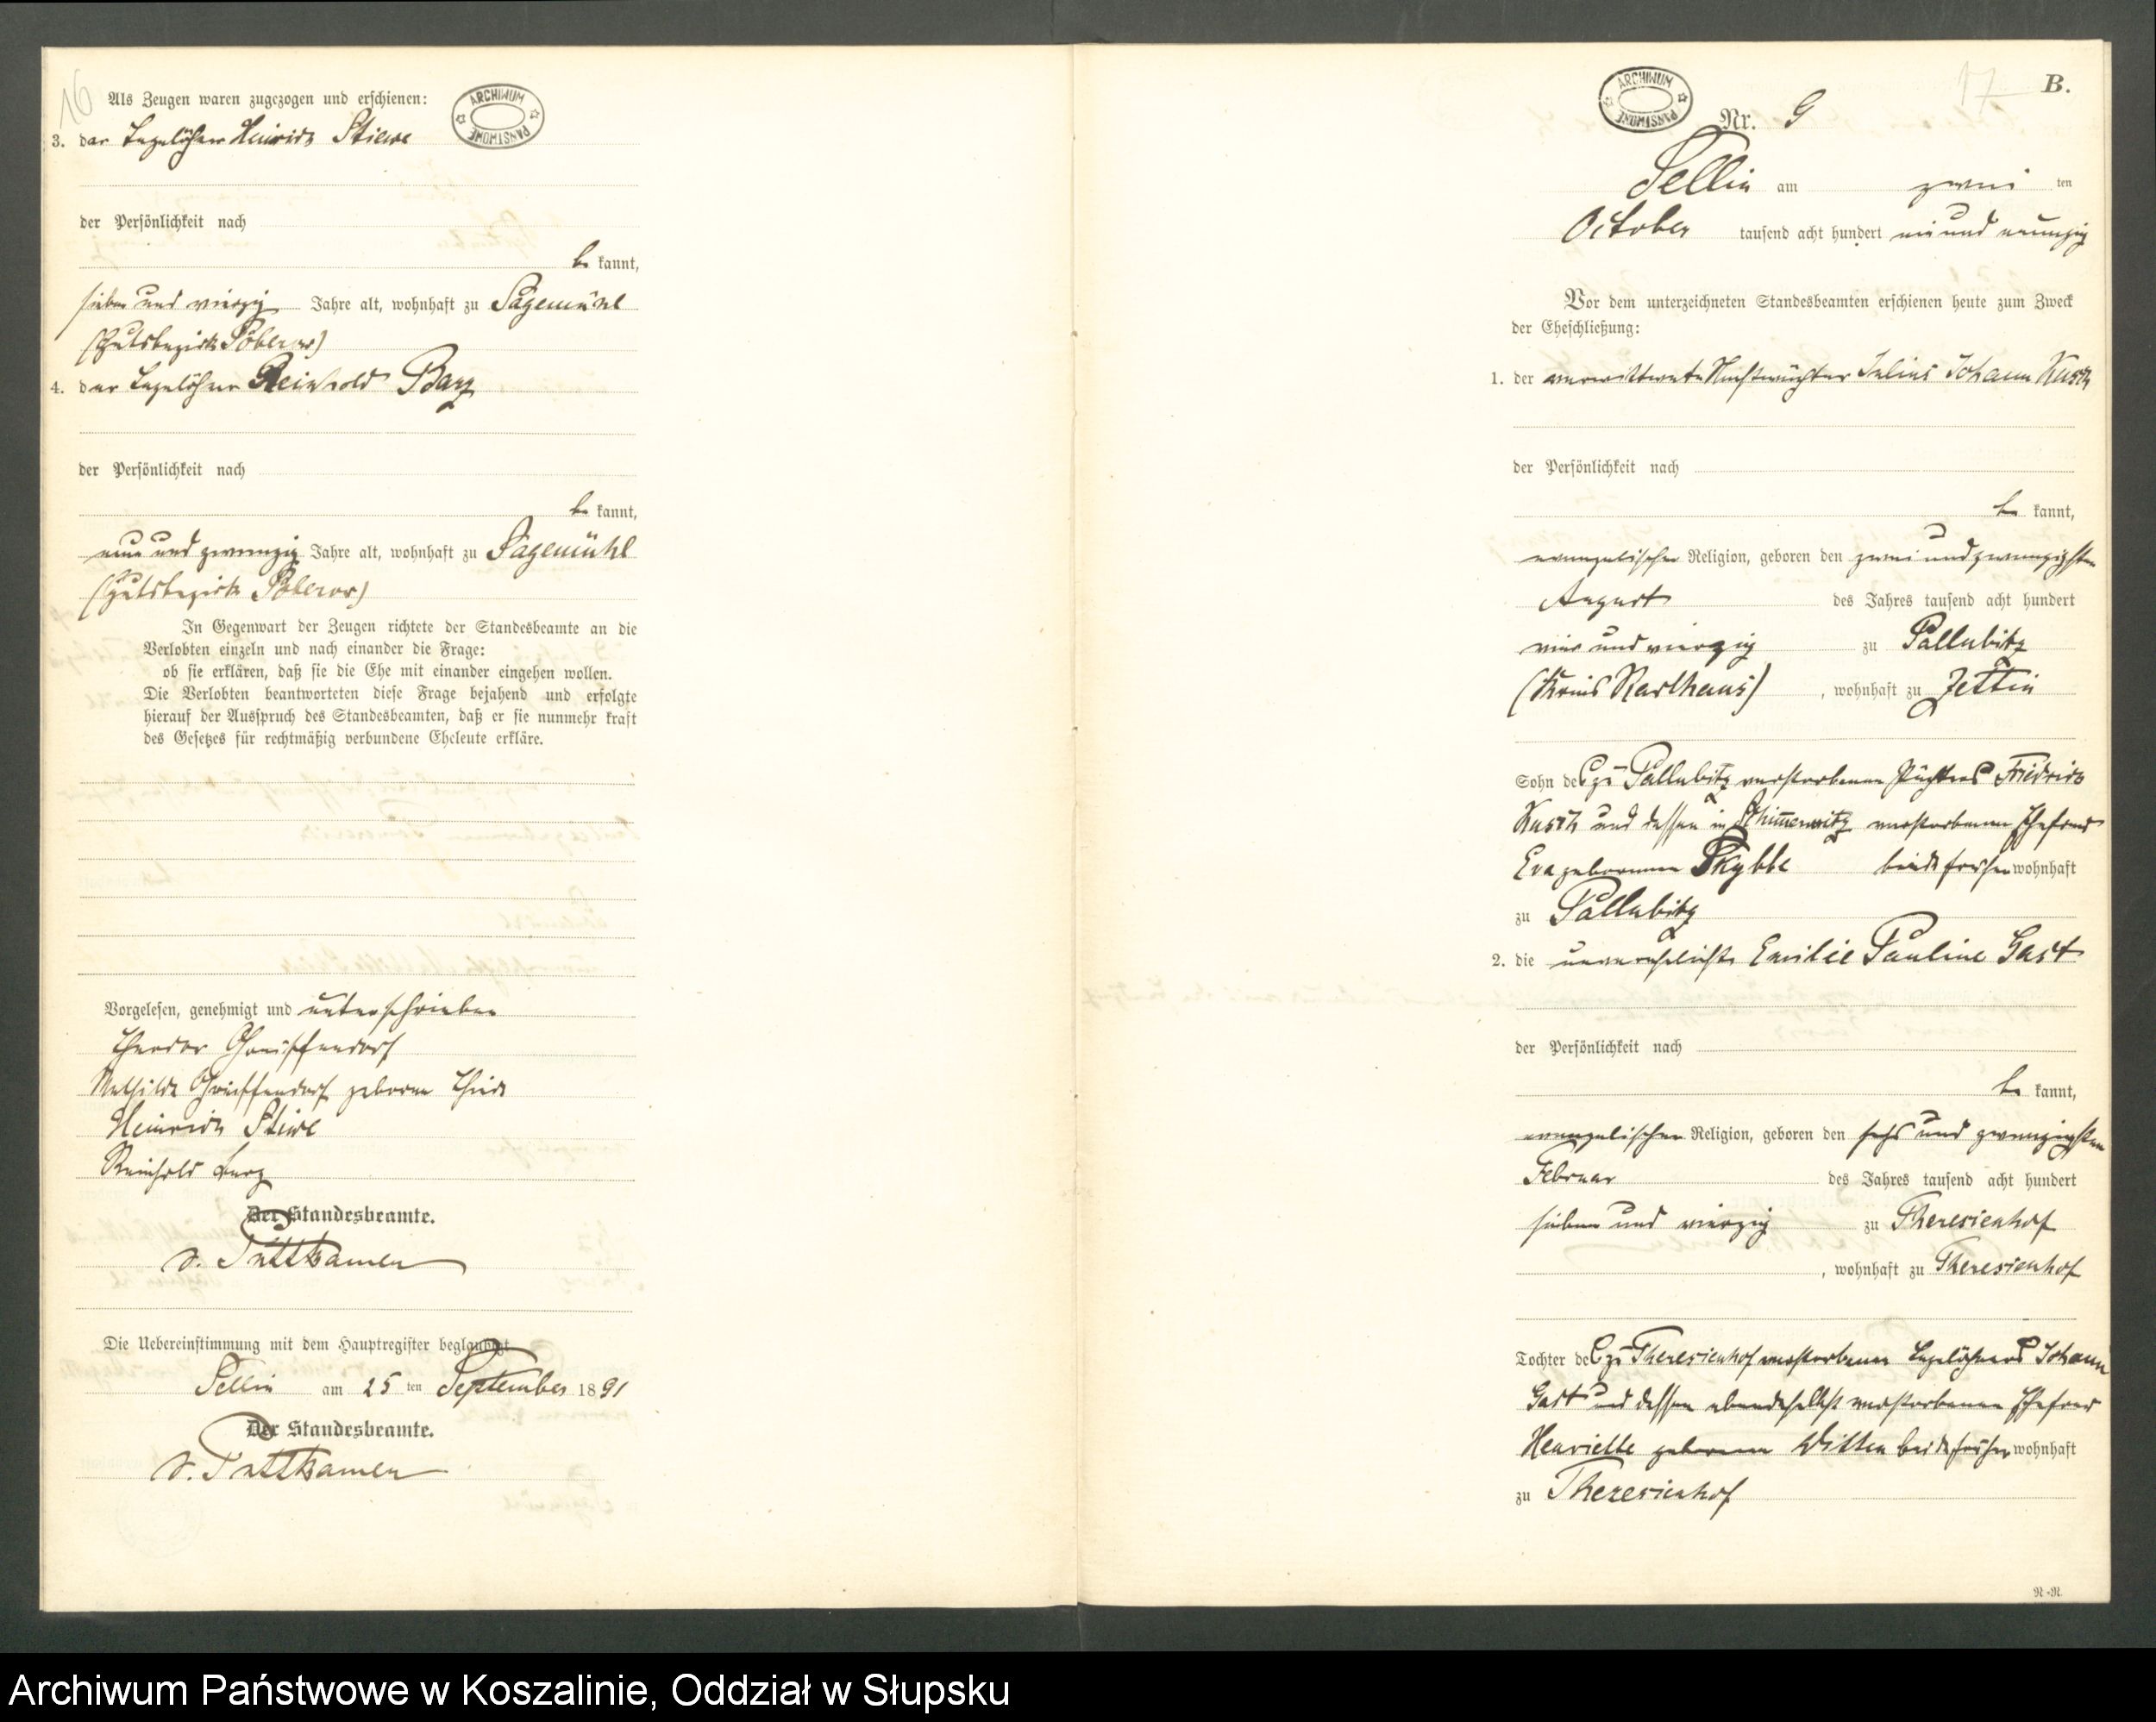 16
Als Zeugen waren zugezogen und erschienen:
ARCHIWUM PAŃSTWOWE
3. der Tagelöhner Heinrich Stiewe
der Persönlichkeit nach
be kannt,
sieben und vierzig Jahre alt, wohnhaft zu Sägemühl
(Gutsbezirk Poberow)
4. der Tagelöhner Reinhold Barz
der Persönlichkeit nach
be kannt,
neun und zwanzig Jahre alt, wohnhaft zu Sägemühl
(Gutsbezirk Poberow)
In Gegenwart der Zeugen richtete der Standesbeamte an die
Verlobten einzeln und nach einander die Frage:
ob sie erklären, daß sie die Ehe mit einander eingehen wollen.
Die Verlobten beantworteten diese Frage bejahend und erfolgte
hierauf der Ausspruch des Standesbeamten, daß er sie nunmehr kraft
des Gesetzes für rechtmäßig verbundene Eheleute erkläre.
Vorgelesen, genehmigt und unterschrieben
Theodor Greiffendorf
Mathilde Greiffendorf geborene Thiede
Heinrich Stiwe
Reinhold Barz
Der Standesbeamte.
v. Puttkamer
Die Uebereinstimmung mit dem Hauptregister beglaubigt
Sellin am 25 ten September 18 91
Der Standesbeamte.
v. Puttkamer
17
B.
ARCHIWUM PAŃSTWOWE
Nr. 9
Sellin am zwei ten
October tausend acht hundert ein und neunzig
Vor dem unterzeichneten Standesbeamten erschienen heute zum Zweck
der Eheschließung:
1. der verwittwete Nachtwächter Julius Johann Kusch
der Persönlichkeit nach
be kannt,
evangelischer Religion, geboren den zwei und zwanzigsten
August des Jahres tausend acht hundert
vier und vierzig zu Pallubitz
(Kreis Karthaus) , wohnhaft zu Zettin
Sohn des zu Pallubitz verstorbenen Pächters Friedrich
Kusch und dessen in Schimmerwitz verstorbenen Ehefrau
Eva geborenen Skybbe beide früher wohnhaft
zu Pallubitz
2. die unverehelichte Emilie Pauline Gast
der Persönlichkeit nach
be kannt,
evangelischer Religion, geboren den sechs und zwanzigsten
Februar des Jahres tausend acht hundert
sieben und vierzig zu Theresienhof
, wohnhaft zu Theresienhof
Tochter des zu Theresienhof verstorbenen Tagelöhners Johann
Gast und dessen ebendaselbst verstorbenen Ehefrau
Henriette geborenen Witten beide früher wohnhaft
zu Theresienhof
R.-R.
Archiwum Państwowe w Koszalinie, Oddział w Słupsku